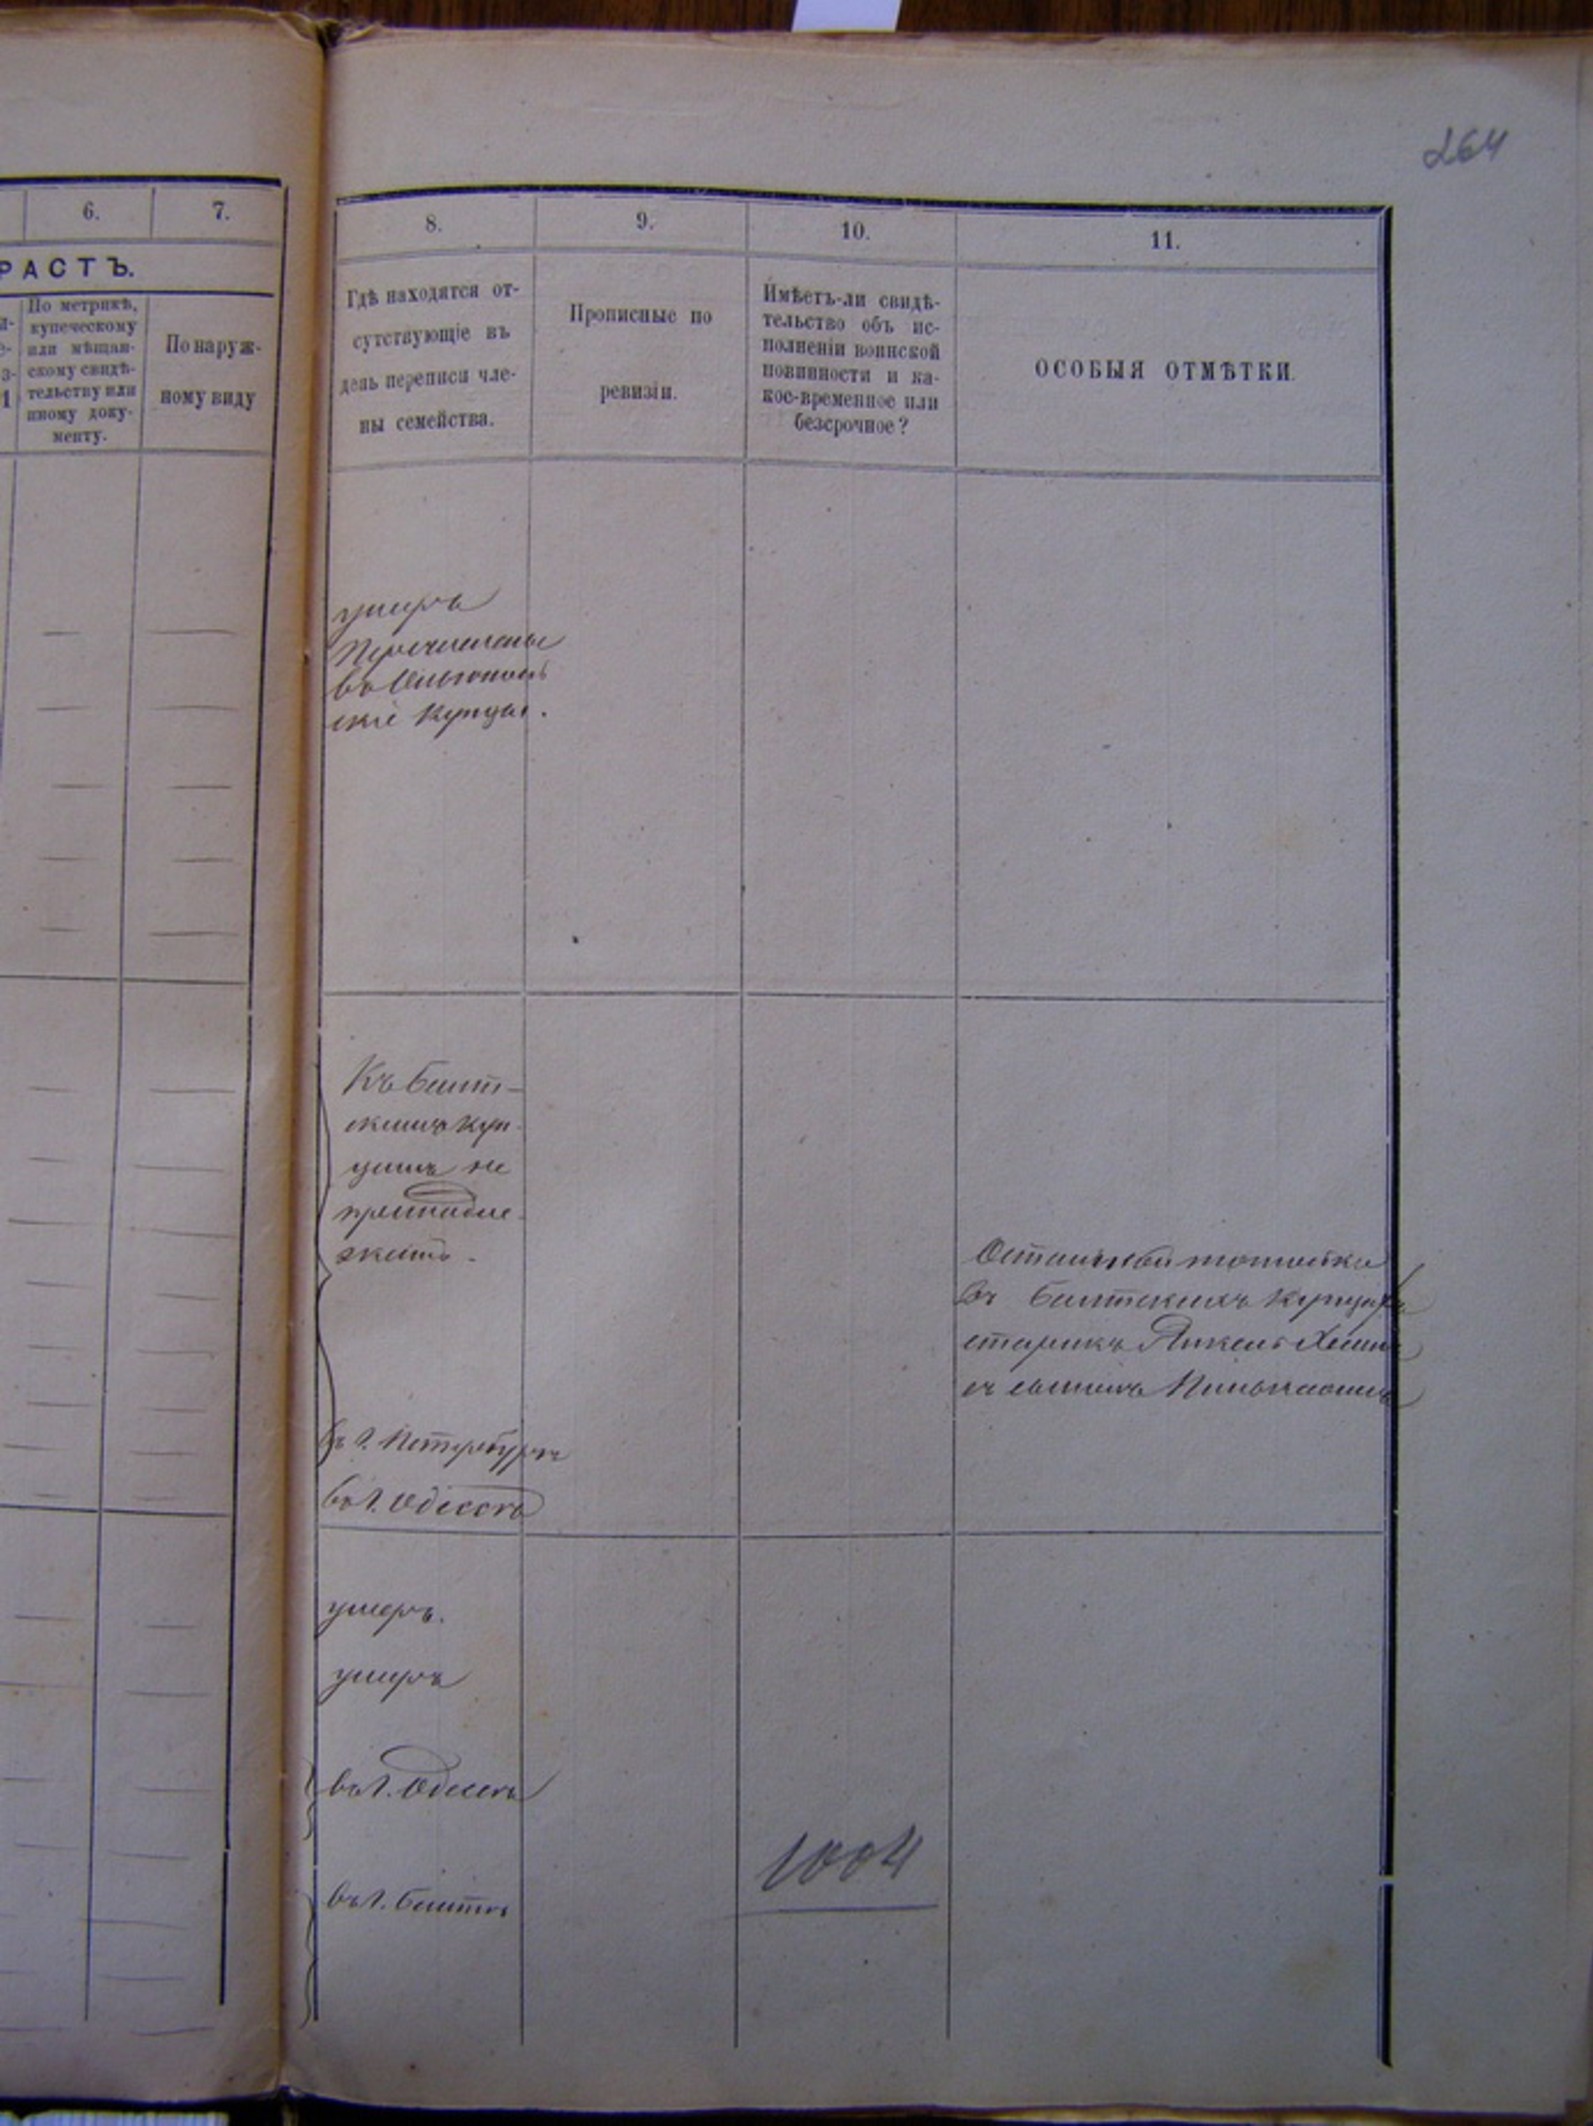 264
6.
7.
РАСТЪ.
По метрикѣ,
купеческому
или мѣщан-
скому свидѣ-
тельству или
иному доку-
менту.
По наруж-
ному виду
8.
9.
10.
11.
Гдѣ находятся от-
сутствующіе въ
день переписи чле-
ны семейства.
Прописные по
ревизіи.
Имѣетъ-ли свидѣ-
тельство объ ис-
полненіи воинской
повинности и ка-
кое-временное или
безсрочное?
ОСОБЫЯ ОТМѢТКИ.
умеръ
Перечислены
въ
скіе Купцы.
Къ Балт-
скимъ куп-
цамъ не
принадле-
житъ.
въ г. Петербургѣ
въ г. Одессѣ
Остались только
въ Балтскихъ Купцахъ
старикъ Янкель Хаимъ
съ сыномъ
умеръ.
умеръ
въ г. Одессѣ
въ г. Балтѣ
1004